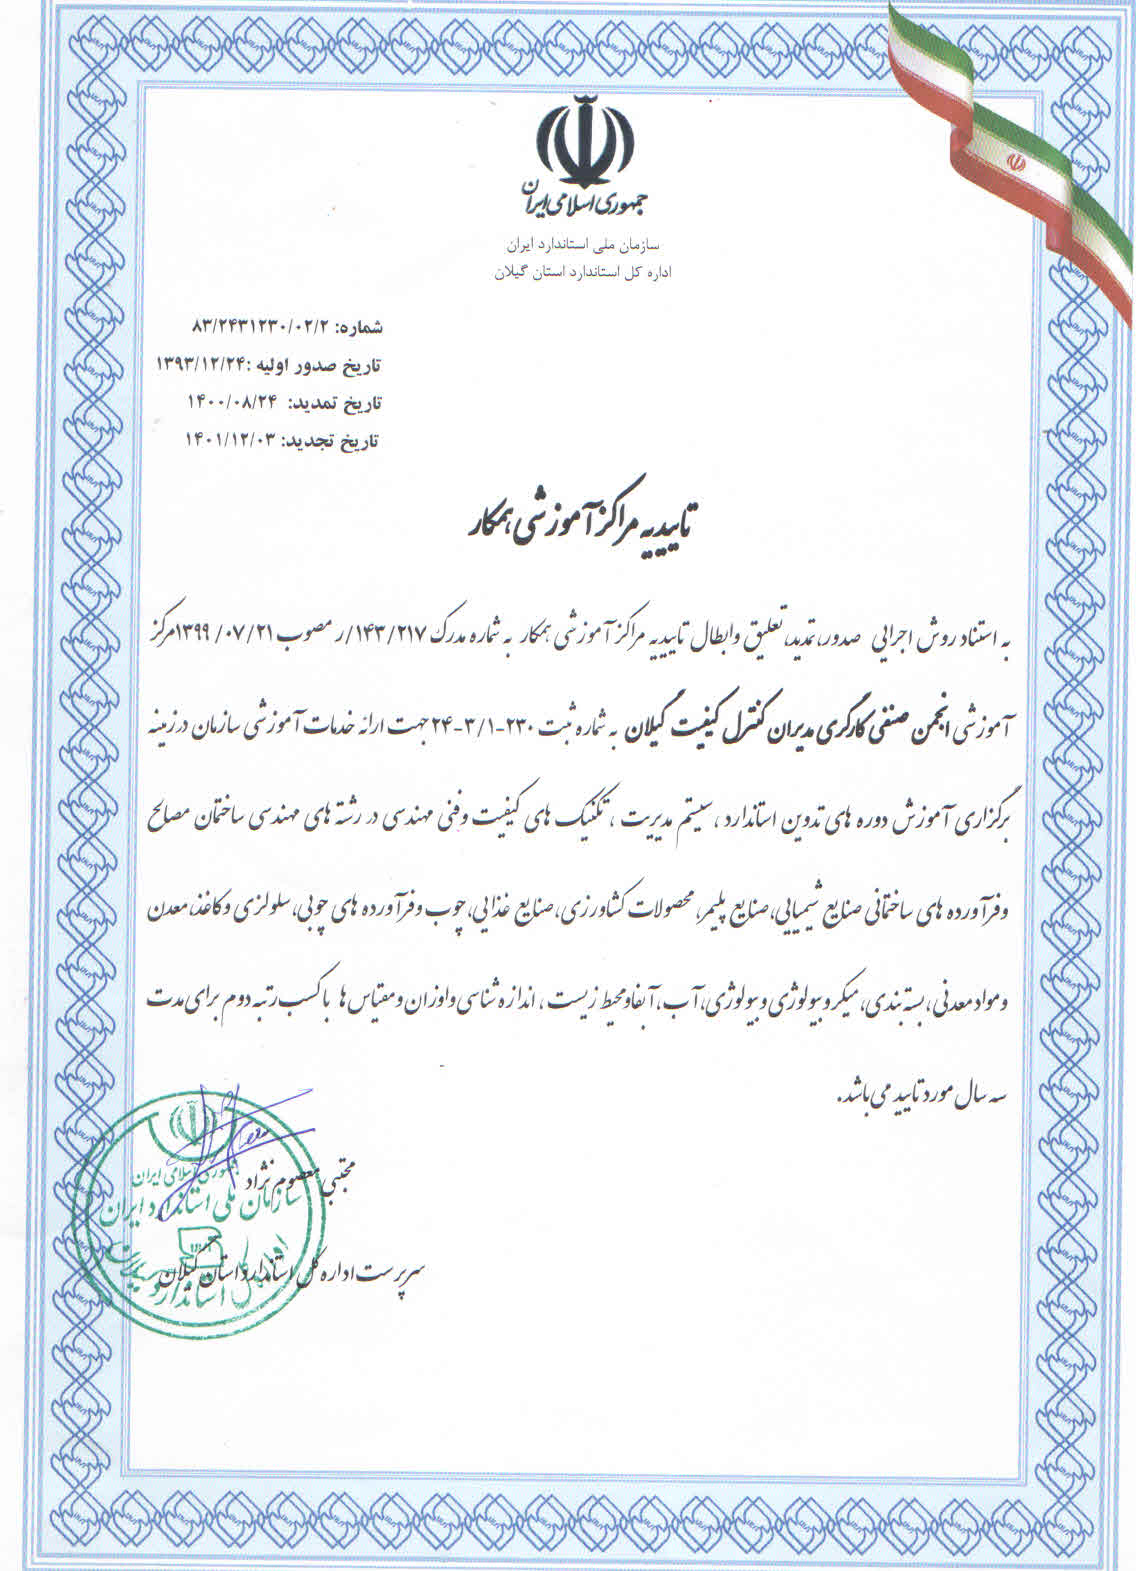 جمهوری اسلامی ایران
سازمان ملی استاندارد ایران
اداره کل استاندارد استان گیلان
شماره: ۸۳/۲۴۳۱۲۳۰/۰۲/۲
تاریخ صدور اولیه :۱۳۹۳/۱۲/۲۴
تاریخ تمدید: ۱۴۰۰/۰۸/۲۴
تاریخ تجدید: ۱۴۰۱/۱۲/۰۳
تاییدیه مراکز آموزشی همکار
به استناد روش اجرایی صدور، تمدید، تعلیق و ابطال تاییدیه مراکز آموزشی همکار به شماره مدرک ۱۴۳/۲۱۷/ر مصوب ۱۳۹۹/۰۷/۲۱ مرکز
آموزشی انجمن صنفی کارگری مدیران کنترل کیفیت گیلان به شماره ثبت ۲۳۰-۲۴-۳/۱ جهت ارائه خدمات آموزشی سازمان در زمینه
برگزاری آموزش دوره های تدوین استاندارد ، سیستم مدیریت ، تکنیک های کیفیت و فنی مهندسی در رشته های مهندسی ساختمان مصالح
وفرآورده های ساختمانی صنایع شیمیایی، صنایع پلیمر، محصولات کشاورزی، صنایع غذایی، چوب وفرآورده های چوبی، سلولزی وکاغذ، معدن
ومواد معدنی ، بسته بندی، میکروبیولوژی وبیولوژی، آب، آبفا ومحیط زیست ، اندازه شناسی واوزان ومقیاس ها با کسب رتبه دوم برای مدت
سه سال مورد تایید می باشد.
مجتبی معصوم نژاد
سرپرست اداره کل استاندارد استان گیلان
جمهوری اسلامی ایران
سازمان ملی استاندارد ایران